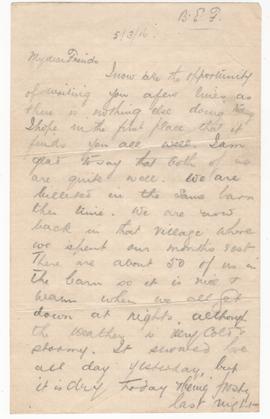 B.E.F.
5/3/16.
My dear Friends
I now take the opportunity
of writing you a few lines as
there is nothing else doing
I hope in the first place that it
finds you all well. I am
glad to say that both of us
are quite well. We are
billeted in the same barn
this time. We are now
back in that village where
we spent our months rest
There are about 50 of us in
the barn so it is nice &
warm when we all get
down at nights, although
the weather is very cold &
stormy. It snowed here
all day yesterday, but
it is dry today being frosty
last night